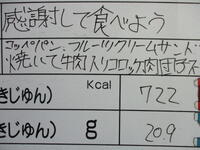 感謝して食べよう
コッペパン、フルーツクリームサンド
焼いて牛肉入りコロッケ肉団子ス
Kcal
きじゅん) 722
きじゅん) g 20.9